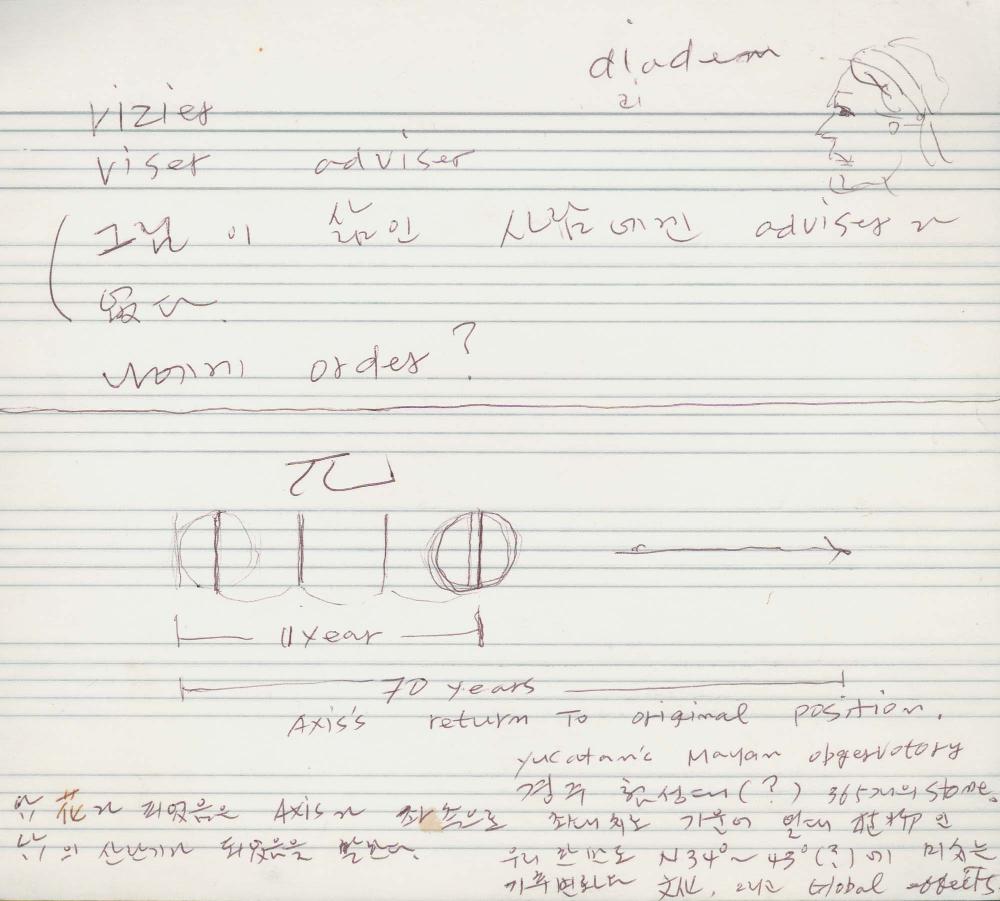 diadem
리
vizier
viser adviser
(그림이 삶인 사람에겐 adviser가
없다.
나에게 order?
11 year
70 years
Axis's return To original position.
Yucatan's Mayan observotory
경주 첨성대(?) 365개의 stone.
花가 피었음은 Axis가 좌측으로
기울어 열대 植物인
의 산난기가 되었음을 말한다.
우리 한반도 N34°~43°(?)에 미치는
기후변화나 文化, 그리고 Global effects.